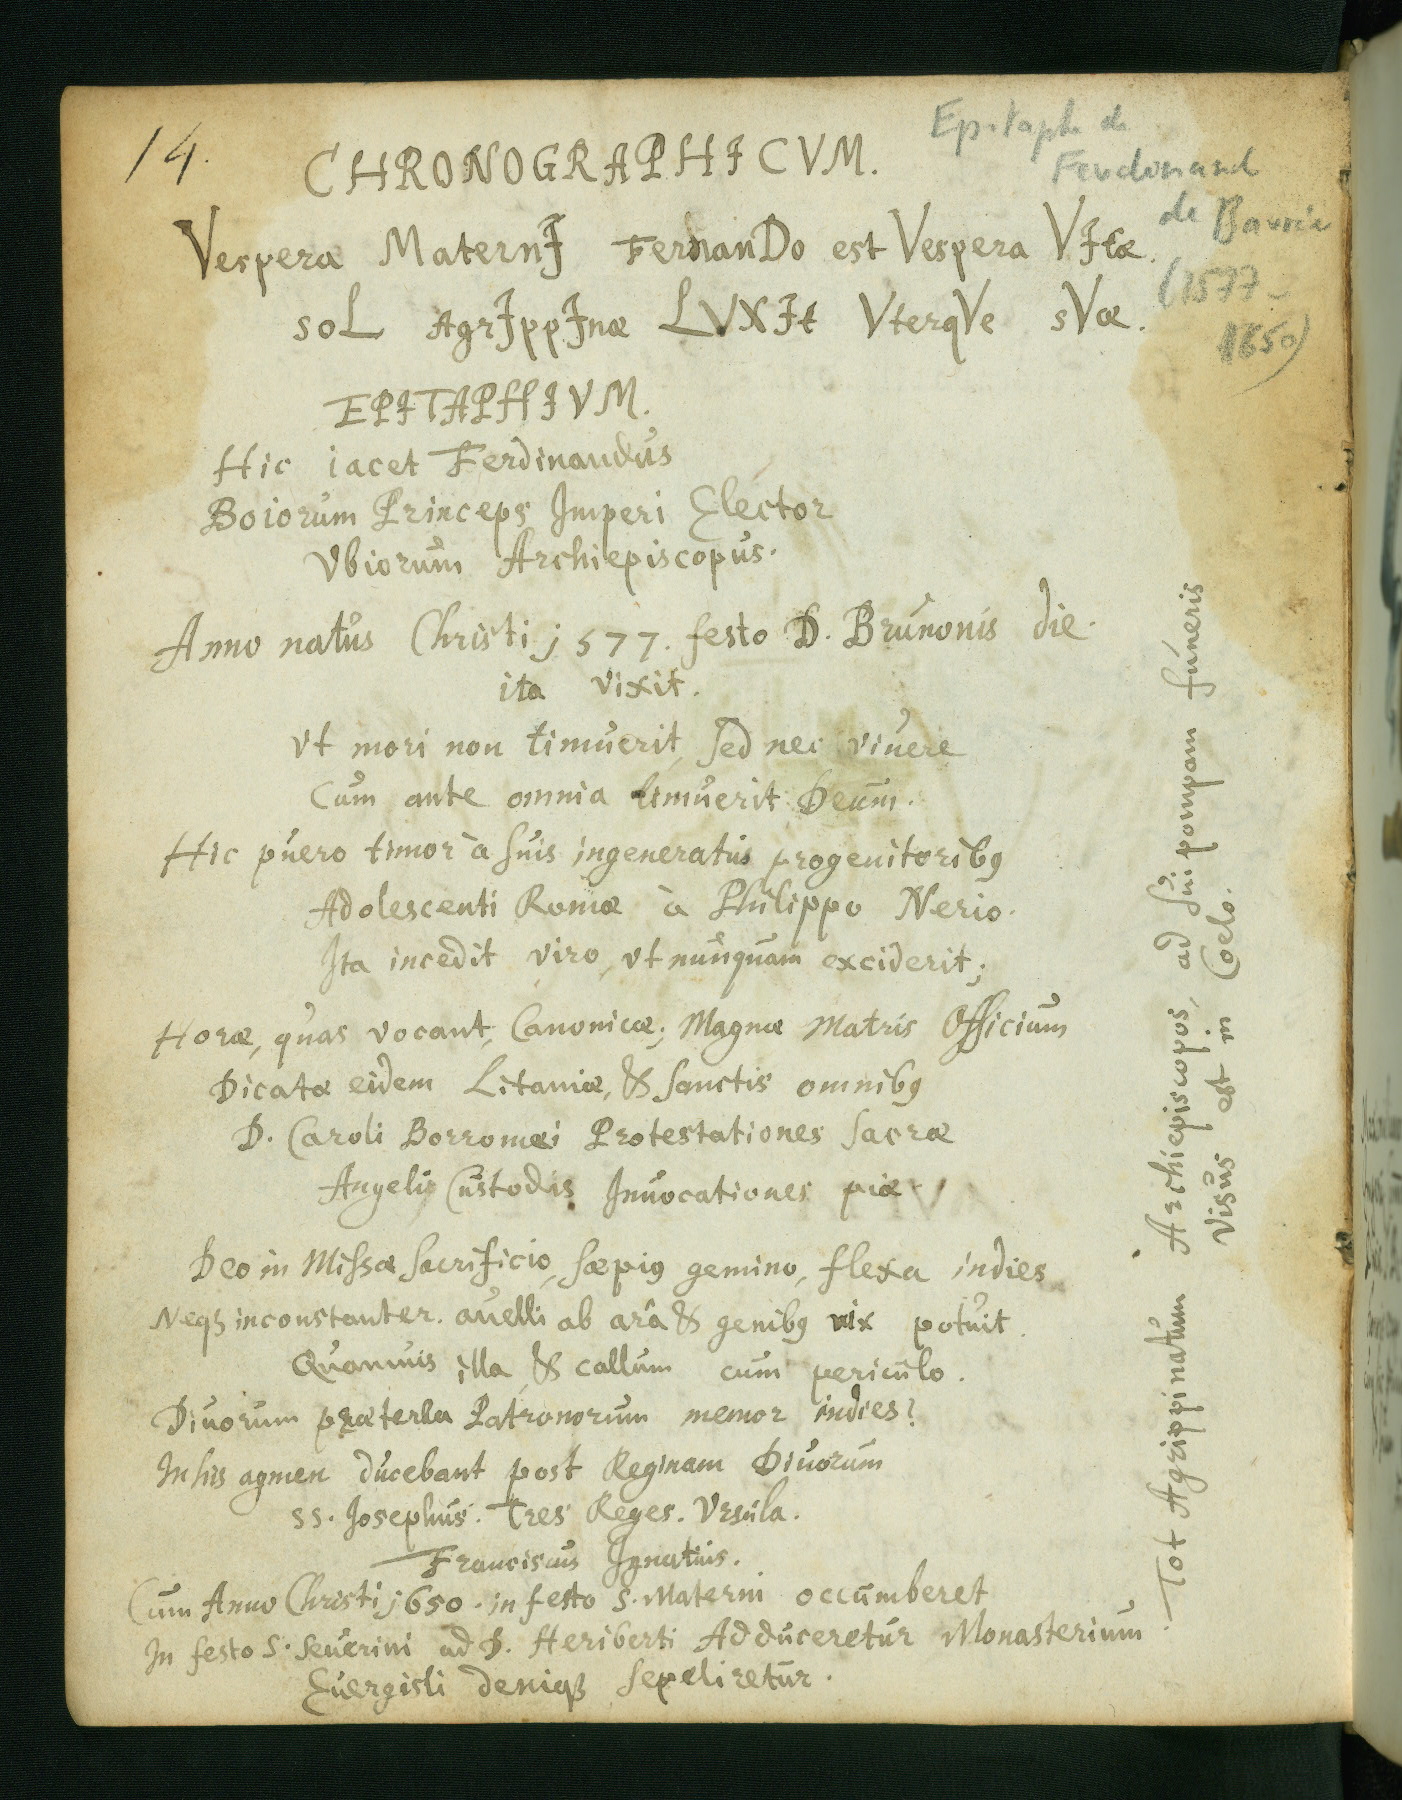 14.
Epitaphe de
Ferdinand
de Bavière
(1577-
1650)
CHRONOGRAPHICVM.
Vesperæ MaternI FernanDo est Vespera VItæ.
soL AgrIppInæ LVXIt VterqVe sVæ.
EPITAPHIVM.
Hic iacet Ferdinandus
Boiorum Princeps Imperi Elector
Vbiorum Archiepiscopus.
Anno natus Christi j577. festo D. Brunonis die.
ita vixit.
vt mori non timuerit, sed nec viuere
Cum ante omnia timuerit Deum.
Hic puero timor à suis ingeneratus progenitoribꝯ
Adolescenti Romæ à Philippo Nerio.
Ita incedit viro, vt nunquam exciderit;
Horæ, quas vocant, Canonicæ; Magnæ Matris Officium
Dicatæ eidem Litaniæ, & Sanctis omnibꝯ
D. Caroli Borromæi Protestationes sacræ
Angelis Custodis Inuocationes piæ
Deo in Missæ Sacrificio, sæpiꝯ gemino, flexa indies
Neqꝫ inconstanter. auelli ab arâ & genibꝯ vix potuit.
Quamuis illa, & callum cum periculo.
Diuorum præterea Patronorum memor indies?
In his agmen ducebant post Reginam Diuorum
ss. Josephus. Tres Reges. Vrsula.
Franciscus Ignatius.
Cum Anno Christi j650. in festo S. Materni occumberet
In festo S. Seuerini ad D. Heriberti Adduceretur Monasterium
Euergisli deniqꝫ sepeliretur.
Tot Agrippinatum Archiepiscopos, ad sui pompam funeris
Visus est in Coelo.